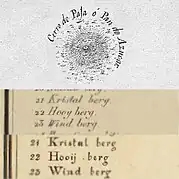 Cerro de Pasa ó Pan de Azucar
21 Kristal berg
22 Hooy berg
23 Wind berg
21 Kristal berg
22 Hooij berg
23 Wind berg